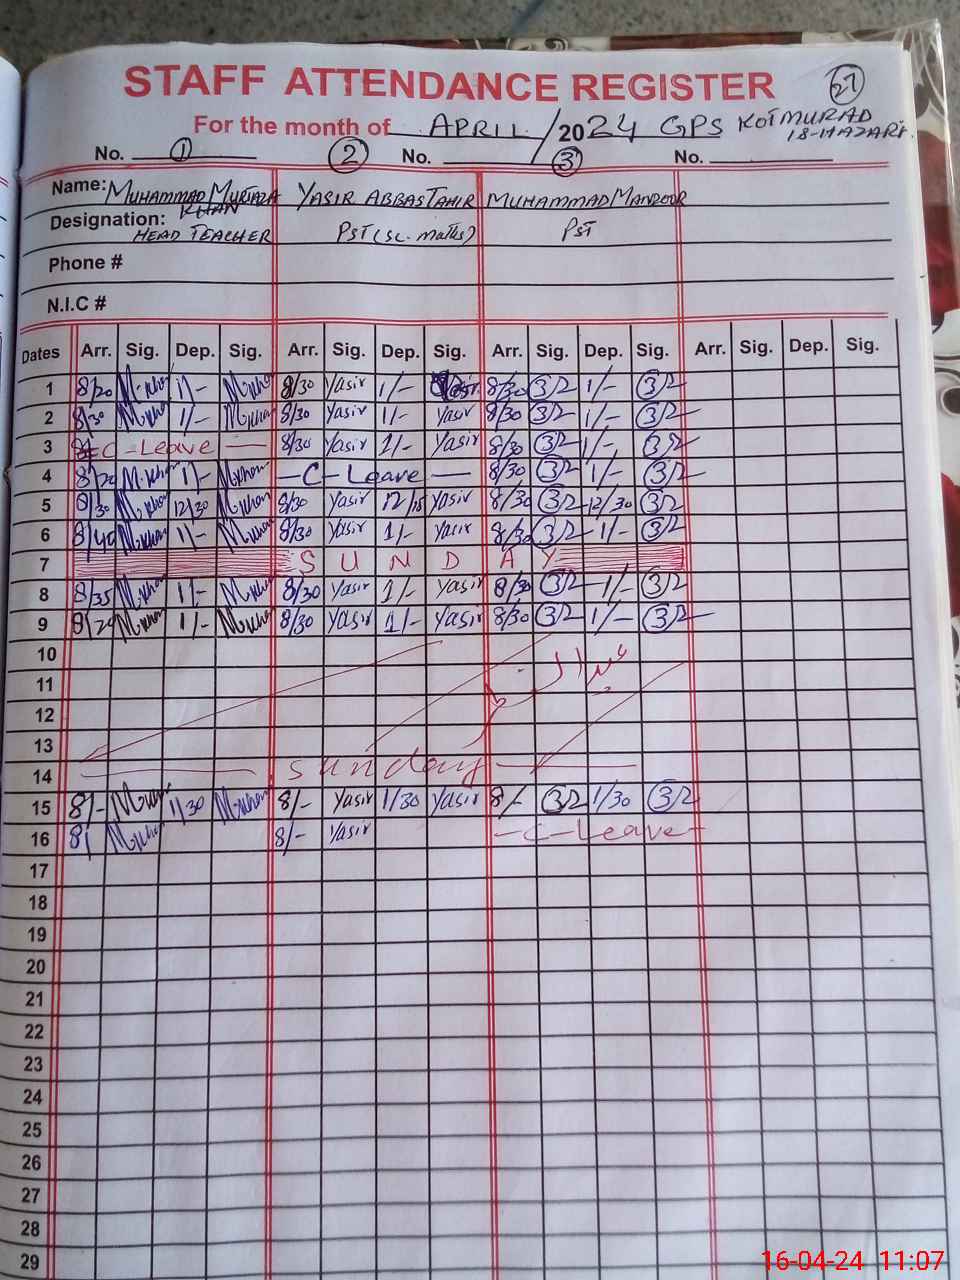 STAFF ATTENDANCE REGISTER 27
For the month of APRIL 2024 GPS KOTMURAD
18-HAZARI.
No. 1 2 No. 3 No.
Name: MUHAMMAD MURTAZA YASIR ABBAS TAHIR MUHAMMAD MANZOOR
KHAN
Designation: HEAD TEACHER PST (SC. maths) PST
Phone #
N.I.C #
Dates Arr. Sig. Dep. Sig. Arr. Sig. Dep. Sig. Arr. Sig. Dep. Sig. Arr. Sig. Dep. Sig.
1 8/20 M.khan 1/- M.khan 8/30 Yasir 1/- 8/30 1/-
2 8/30 M.khan 1/- M.khan 8/30 Yasir 1/- Yasir 8/30 1/-
3 C-Leave 8/30 Yasir 1/- Yasir 8/30 1/-
4 8/20 M.khan 1/- M.khan C-Leave 8/30 1/-
5 8/30 M.khan 12/30 M.khan 8/30 Yasir 12/ Yasir 8/30 12/30
6 8/40 M.khan 1/- M.khan 8/30 Yasir 1/- Yasir 8/30 1/-
7 SUNDAY
8 8/35 M.khan 1/- M.khan 8/30 Yasir 1/- Yasir 8/30 1/-
9 8/20 M.khan 1/- M.khan 8/30 Yasir 1/- Yasir 8/30 1/-
10
11 عید الفطر
12
13
14 Sunday
15 8/- M.khan 1/30 M.khan 8/- Yasir 1/30 Yasir 8/- 1/30
16 8/ M.khan 8/- Yasir -C-Leave-
17
18
19
20
21
22
23
24
25
26
27
28
29
16-04-24 11:07